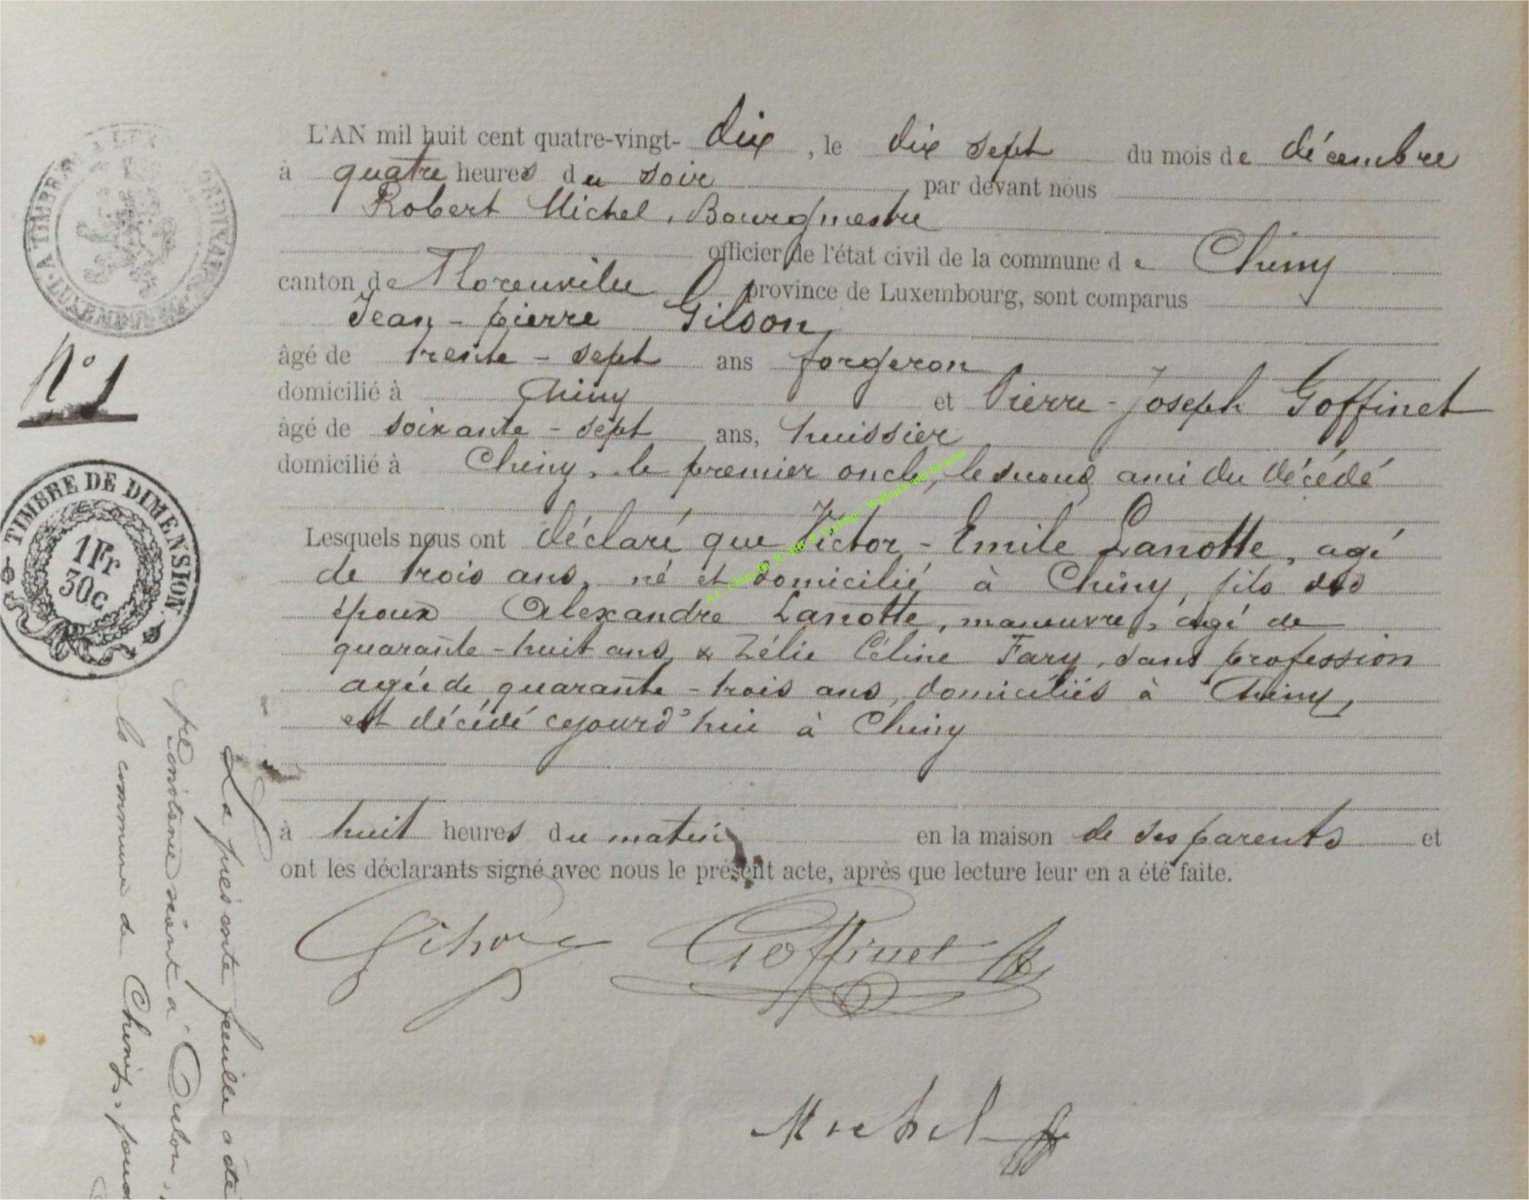 L'AN mil huit cent quatre-vingt- dix, le dix sept du mois de décembre
à quatre heures du soir par devant nous
Robert Michel, Bourgmestre
officier de l'état civil de la commune de Chiny
canton de Florenville province de Luxembourg, sont comparus
Jean-pierre Gilson,
âgé de trente-sept ans forgeron
domicilié à Chiny et Pierre-Joseph Goffinet
âgé de soixante-sept ans, huissier
domicilié à Chiny, le premier oncle, le second ami du décédé
Lesquels nous ont déclaré que Victor-Emile Lanotte, agé
de trois ans, né et domicilié à Chiny, fils des
époux Alexandre Lanotte, manœuvre, agé de
quarante-huit ans & Zélie Céline Fary, sans profession
agée de quarante-trois ans, domiciliés à Chiny,
est décédé cejourd'hui à Chiny
à huit heures du matin en la maison de ses parents et
ont les déclarants signé avec nous le présent acte, après que lecture leur en a été faite.
Gilson Goffinet
Michel
N° 1
TIMBRE DE DIMENSION
1 Fr
30c
La présente feuille a été
séant à Arlon,
la commune de Chiny, pour